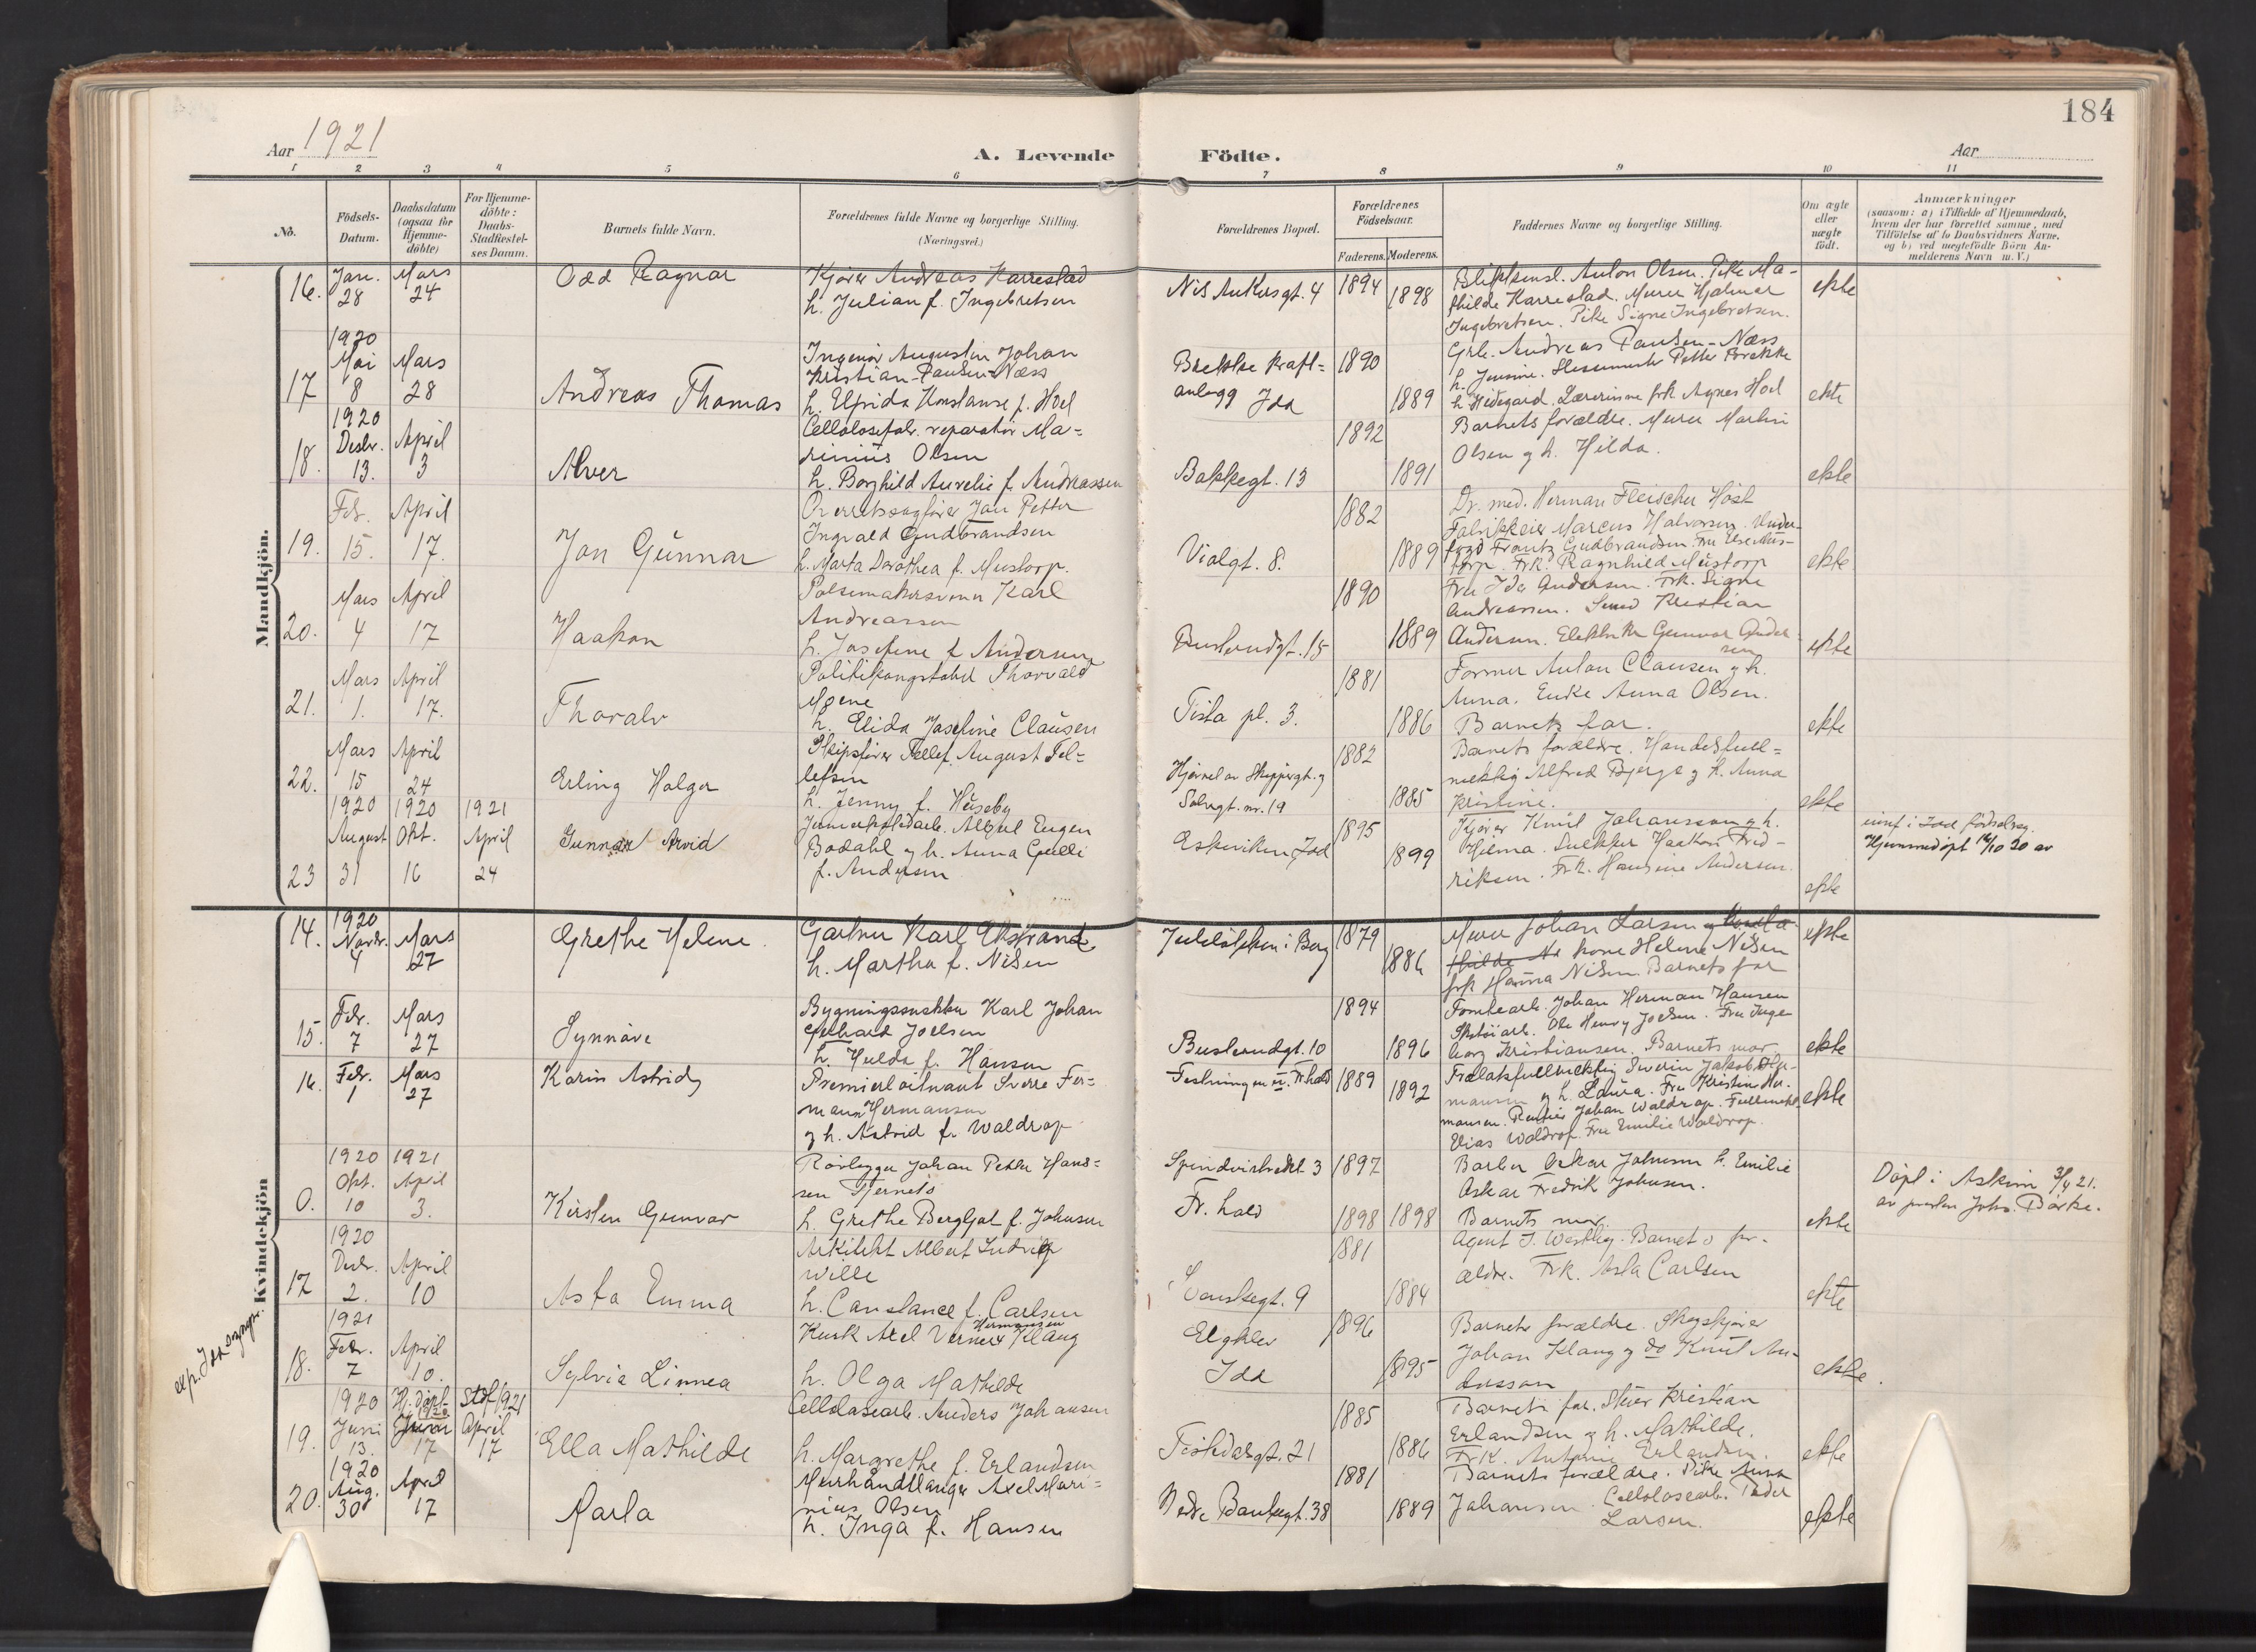 184
Aar 1921
A. Levende Födte.
Aar
1 2 3 4 5 6 7 8 9 10 11
No.
Födsels-
Datum.
Daabsdatum
(ogsaa för
Hjemme-
döbte)
For Hjemme-
döbte:
Daabs-
Stadfæstel-
ses Datum.
Barnets fulde Navn.
Forældrenes fulde Navne og borgerlige Stilling.
(Næringsvei.)
Forældrenes Bopæl.
Forældrenes
Födselsaar.
Faderens. Moderens.
Faddernes Navne og borgerlige Stilling.
Om ægte
eller
uægte
födt.
Anmærkninger
(saasom: a) i Tilfælde af Hjemmedaab,
hvem der har forrettet samme, med
Tilföielse af to Daabsvidners Navne,
og b) ved uægtefödte Börn An-
melderens Navn m. V.)
Mandkjön.
16. Jan. 28 Mars 24
Odd Ragnar
Kjører Andreas Karrestad
h. Julian f. Ingebretsen
Nils Ankersgt. 4
1894 1898
Anton Olsen. Pike Ma-
thilde Karrestad. Murer Hjalmar
Ingebretsen. Pike Signe Ingebretsen.
ekte
17 1920 Mai 8 Mars 28
Andreas Thomas
Ingeniør Augustin Johan
Kristian Paulsen-Næss
h. Elfrida Konstanse f. Hoel
Brekke kraft=
anlegg Idd
1890 1889
Andreas Paulsen-Næss
h. Jensine. Petter Brekke
h. Hildegard. Lærerinne frk Agnes Hoel
ekte
18. 1920 Desbr. 13. April 3
Alver
Cellulosefabr. reparatør Ma-
rinius Olsen
h. Borghild Aurelie f. Andreassen
Bakkegt. 13
1892 1891
Barnets forældre. Murer Martin
Olsen og h. Hilda.
ekte
19. Febr. 15. April 17.
Jan Gunnar
Overretssagfører Jan Petter
Ingvald Gudbrandsen
h. Marta Dorothea f. Mustorp.
Violgt. 8.
1882 1889
Dr. med. Herman Fleischer Høst
Fabrikkeier Marcus Halvorsen. Under-
fogd Frantz Gudbrandsen. Fru Else Mus-
torp. Frk. Ragnhild Mustorp
ekte
20. Mars 4 April 17
Haakon
Pølsemakersvenn Karl
Andreassen
h. Josefine f. Andersen
Buslundgt. 15
1890 1889
Fru Ida Andersen. Frk. Signe
Andreassen. Smed Kristian
Andersen. Elektriker Gunnar Ander-
sen
ekte
21. Mars 1. April 17.
Thoralv
Politikonstabel Thorvald
Moene
h. Elida Josefine Clausen
Tista pl. 3.
1881 1886
Former Anton Clausen og h.
Anna. Enke Anna Olsen.
Barnets far.
ekte
22. Mars 15 April 24
Erling Holger
Skipsfører Tellef August Tel-
lefsen
h. Jenny f. Huseby
Hjørnet av Skippergt. og
Solvgt. nr. 19
1882 1885
Barnets forældre. Handelsfull=
mektig Alfred Bjerge og h. Anna
Kristine.
ekte
23 1920 August 31 1920 Okt. 16 1921 April 24
Gunnar Arvid
Albert Eugen
Bodahl og h. Anna Gulli
f. Andersen
Eskeviken, Idd
1895 1899
Kjører Knut Johansson og h.
Hilma. Snekker Haakon Fred-
riksen. Frk. Hansine Andersen.
ekte
innf i Idd födselreg.
Hjemmedöpt 16/10 20 av
Kvindekjön
14. 1920 Novbr. 4 Mars 27
Grethe Helene.
Gartner Karl Ekstrand
h. Martha f. Nilsen
i Berg
1879 1886
Murer Johan Larsen og
kone Helene Nilsen
frk Hanna Nilsen. Barnets far
ekte
15. Febr. 7 Mars 27
Synnöve
Bygningssnekker Karl Johan
Gerhard Joelsen
h. Hulda f. Hansen
Buslundgt. 10
1894 1896
Tomtearb. Johan Herman Hansen
Skotöiarb. Ole Henry Joelsen. Fru Inge-
borg Kristiansen. Barnets mor
ekte
16. Febr. 1 Mars 27
Karin Astrid
Premierløitnant Sverre Fer=
mann Hermansen
og h. Astrid f. Waldrop
Festningen Fr.hald
1889 1892
Severin Jakob Her-
mansen og h. Laura. Fru Kristin Her-
mansen. Rentier Johan Waldrop. Fullmekt.
Elias Waldrop. Fru Emilie Waldrop.
ekte
0. 1920 Okt. 10 1921 April 3.
Kirsten Gunvor
Rörlegger Johan Petter Hans=
sen Tjernets
h. Grethe Bergljot f. Johnsen
3
Fr. hald
1897 1898 1898
Barber Oskar Johnsen h. Emilie
Oskar Fredrik Johnsen.
Barnets mor
ekte
Döpt i Askim 3/4 21.
av presten Johs. Børke.
17 1920 Desbr. 2. April 10
Asta Emma
Arkitekt Albert Ludvig
Wille
h. Constance f. Carlsen
Svenskegt. 9
1881 1884
Agent J. Westbye. Barnets for-
ældre. Frk. Asta Carlsen
ekte
exp. Idd sogn
18. 1921 Febr. 7 April 10.
Sylvia Linnea
Kusk Axel Verner Hermansen Klang
h. Olga Mathilde
Elgklev
Idd
1896 1895
Barnets forældre. Skogskjører
Johan Klang og do Knut An-
dersson
ekte.
19. 1920 Juni 13. H. döpt 1920 Juni 17 Stdf 1921 April 17
Ella Mathilde
Cellulosearb. Anders Johansen
h. Margrethe f. Erlandsen
Tistedalsgt. 21
1885 1886
Barnets far. Kristian
Erlandsen og h. Mathilde.
Frk. Erlandsen.
ekte
20. 1920 Aug. 30 April 17
Karla
Murhåndlanger Axel Mari=
nius Olsen
h. Inga f. Hansen
Nedre Bankegt. 38
1881 1889
Barnets forældre. Pike Anna
Johansen. Cellulosearb. Peder
Larsen.
ekte